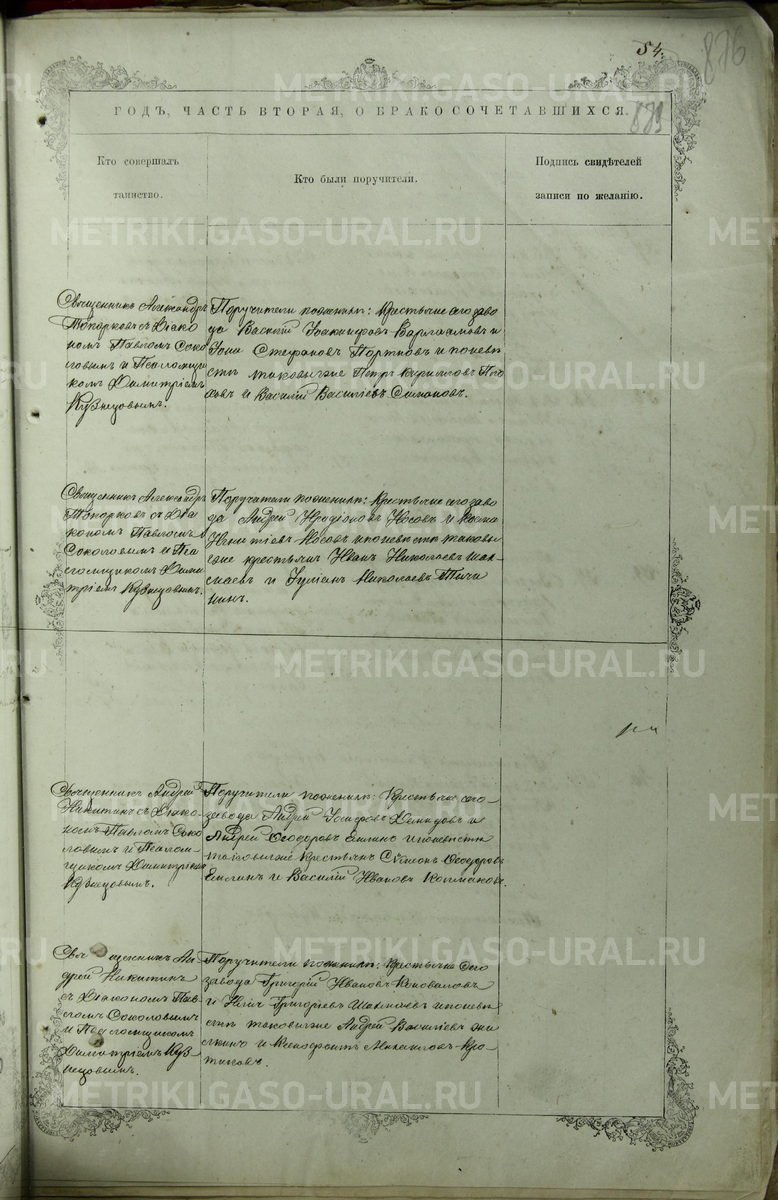 54.
876
879
ГОДЪ, ЧАСТЬ ВТОРАЯ, О БРАКОСОЧЕТАВШИХСЯ.
Кто совершалъ
таинство.
Кто были поручители.
Подпись свидѣтелей
записи по желанію.
Священникъ Александръ
Топорковъ съ Діако-
номъ Павломъ Соко
ловымъ и Псаломщи
комъ Димитріемъ
Кузнецовымъ.
Поручители по женихѣ: Крестьяне сего заво
да Василій Іоакимовъ Варлаамовъ и
Стефановъ Портновъ и по невѣ
стѣ таковыеже Петръ Кириловъ
и Василій Василіевъ Симановъ.
Священникъ Александръ
Топорковъ съ Діа
кономъ Павломъ
Соколовымъ и Пса
ломщикомъ Дими
тріемъ Кузнецовымъ.
Поручители по женихѣ: Крестьяне сего заво
да Андрей Иродіоновъ Носовъ и
Игнатіевъ Носовъ и по невѣстѣ таковы
еже крестьяне Иванъ Николаевъ Шак
маевъ и Іуліанъ Николаевъ
Священникъ Андрей
Никитинъ съ Діако-
номъ Павломъ Соко
ловымъ и Псалом-
щикомъ Димитріемъ
Кузнецовымъ.
Поручители по женихѣ: Крестьяне сего
завода Андрей и
Андрей Ѳеодоровъ Емлинъ и по невѣстѣ
таковыеже крестьяне Симеонъ Ѳеодоровъ
Емлинъ и Василій Ивановъ
Священникъ Ан
дрей Никитинъ
съ Діакономъ Пав
ломъ Соколовымъ
и Псаломщикомъ
Димитріемъ Куз-
нецовымъ.
Поручители по женихѣ: Крестьяне сего
завода Григорій Ивановъ Коноваловъ
и Григоріевъ Шакмаевъ и по невѣ
стѣ таковыеже Андрей Василіевъ
и Ксенофонтъ Михаиловъ Кро
METRIKI.GASO-URAL.RU